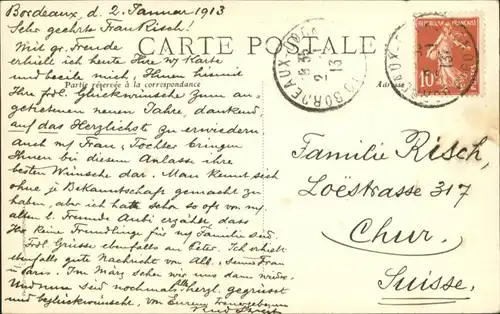 Bordeaux, d. 2. Januar 1913
Sehr geehrte Frau Risch!
CARTE POSTALE
Mit gr. Freude
erhielt ich heute Ihre w/ Karte
und beeile mich, Ihnen hiemit
Partie réservée à la correspondance
Adresse
Ihre frdl. Glückwünsche zum an-
getretenen neuen Jahre, dankend
auf das Herzlichste zu erwiedern
auch m/ Frau, Tochter bringen
Ihnen bei diesem Anlasse ihre
besten Wünsche dar. Man kennt sich
ohne je Bekanntschaft gemacht zu
haben, aber ich hatte schon so oft von m/
alten l. Freunde erzählt, dass
Sie keine Fremdlinge für m/ Familie sind.
Frdl. Grüsse ebenfalls an Peter. Ich erhielt
ebenfalls gute Nachricht von Frau
Paris. Im März sehen wir uns dann
Und nun sind nochmals Alle herzl. gegrüsst
und beglückwünscht, von Eurem
RÉPUBLIQUE FRANÇAISE
10
BORDEAUX
2-1
13
BORDEAUX
13
Familie Risch,
Loëstrasse 317
Chur.
Suisse.